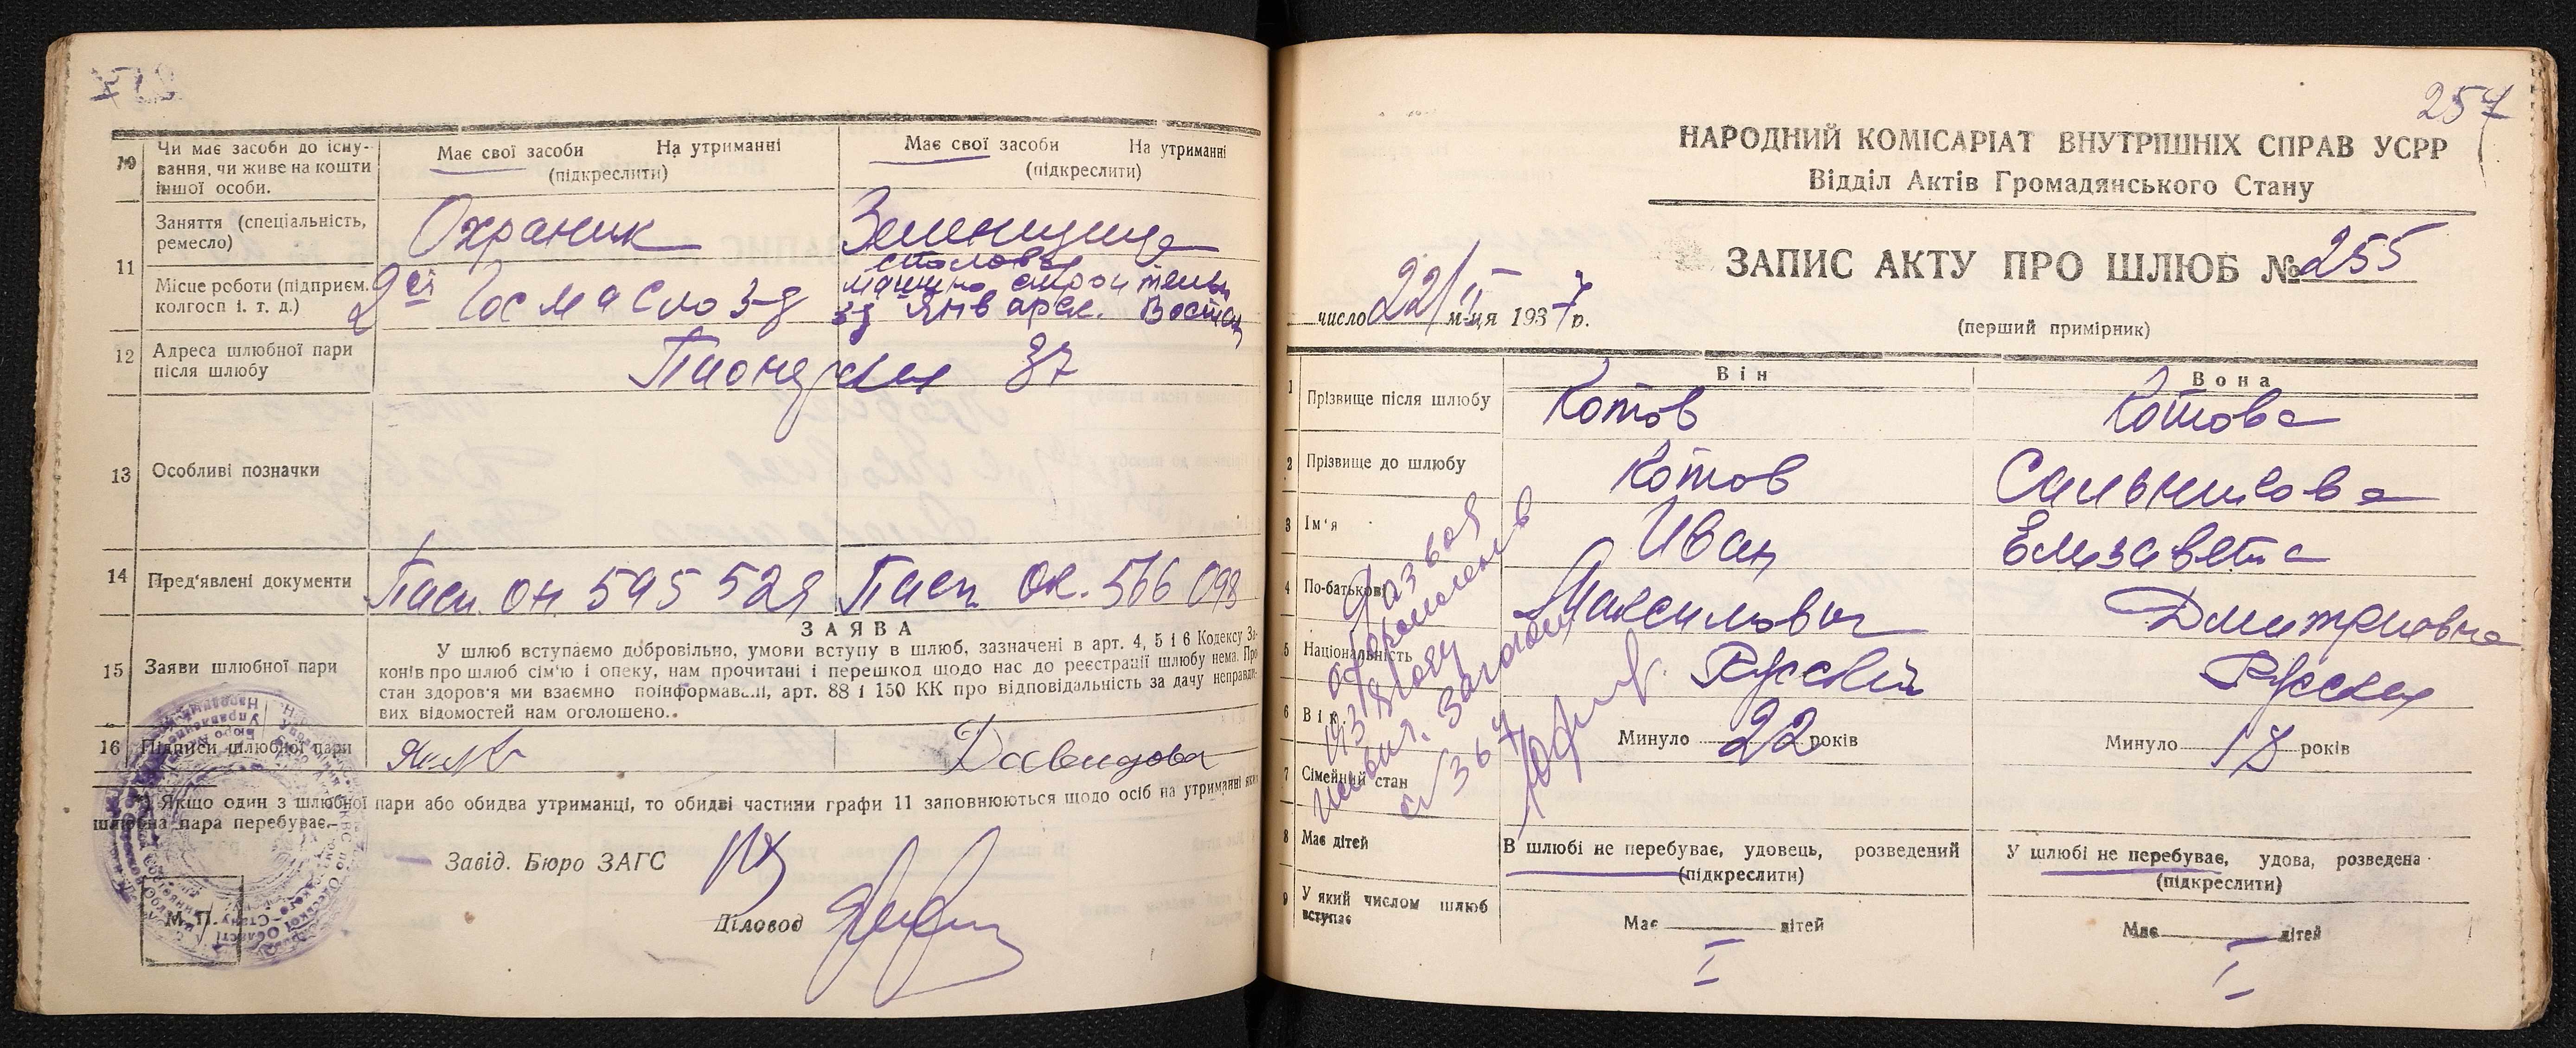 10 Чи має засоби до існу-
вання, чи живе на кошти
іншої особи.
Має свої засоби На утриманні
(підкреслити)
Має свої засоби На утриманні
(підкреслити)
11 Заняття (спеціальність,
ремесло)
Охраник
Місце роботи (підприєм.
колгосп і. т. д.)
2ой Госмаслоз-д
столовая
з-д Январск. Востан
12 Адреса шлюбної пари
після шлюбу
Пионерская 37
13 Особливі позначки
14 Пред'явлені документи
Пасп. ОН 595529
Пасп. ОК. 566098
15 Заяви шлюбної пари
ЗАЯВА
У шлюб вступаємо добровільно, умови вступу в шлюб, зазначені в арт. 4, 5 і 6 Кодексу За-
конів про шлюб сім'ю і опеку, нам прочитані і перешкод щодо нас до реєстрації шлюбу нема. Про
стан здоров'я ми взаємно поінформавалі, арт. 88 і 150 КК про відповідальність за дачу неправди-
вих відомостей нам оголошено.
16 Підписи шлюбної пари
Якщо один з шлюбної пари або обидва утриманці, то обидві частини графи 11 заповнюються щодо осіб на утриманні яких
шлюбна пара перебуває.
Завід. Бюро ЗАГС
Діловод
М. П.
257
НАРОДНИЙ КОМІСАРІАТ ВНУТРІШНІХ СПРАВ УСРР
Відділ Актів Громадянського Стану
ЗАПИС АКТУ ПРО ШЛЮБ № 255
число 22/ м-ця 1937 р.
(перший примірник)
Він
Вона
1 Прізвище після шлюбу
Котов
Котова
2 Прізвище до шлюбу
Котов
Сальникова
3 Ім'я
Иван
Елизавета
4 По-батькові
Максимович
Дмитриевна
5 Національність
Русский
Русская
6 Вік
Минуло 22 років
Минуло 18 років
7 Сімейний стан
8 Має дітей
В шлюбі не перебуває, удовець, розведений
(підкреслити)
У шлюбі не перебуває, удова, розведена
(підкреслити)
9 У який числом шлюб
вступає
Має дітей
Має дітей
I
I